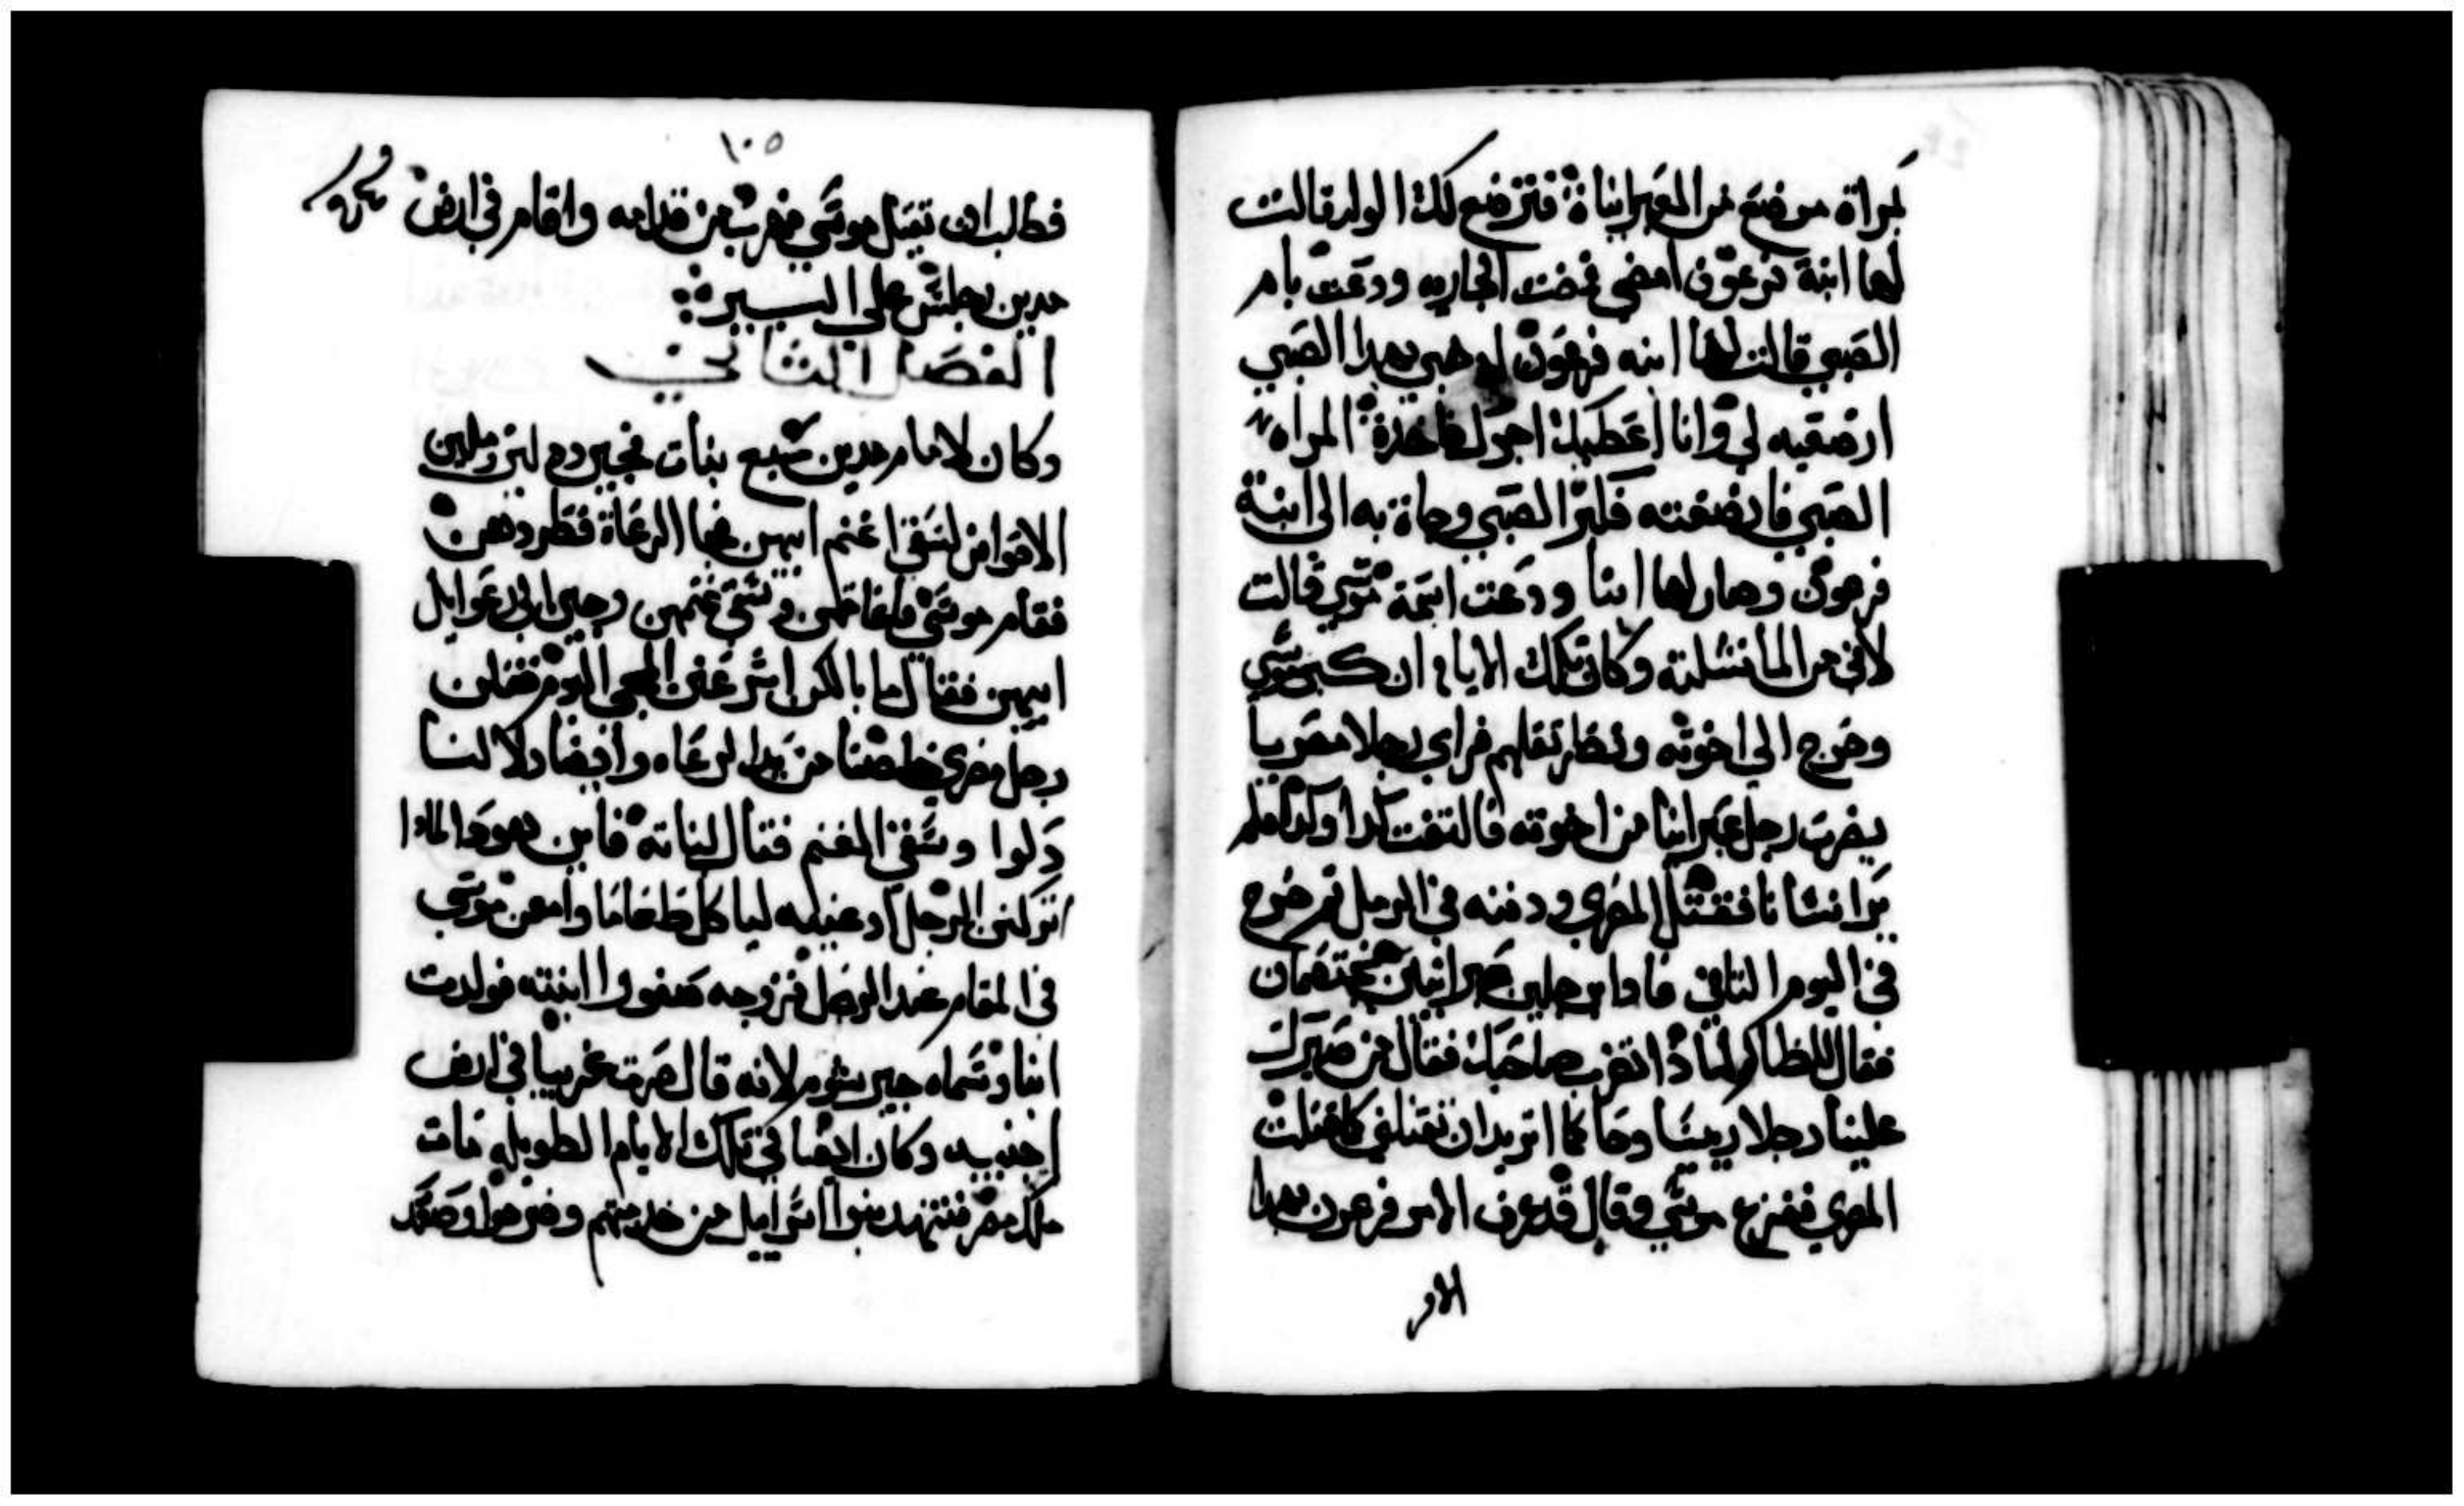 لمراة مرضع من العبرانياة فترضع لك الولد قالت
لها ابنة فرعون امضي فمضت الجاريه ودعت بام
الصبي قالت لها ابنه فرعون لهدا الصبي
ارضعيه لي وانا اعطيك اجرك فاخدة المراه
الصبي فارضعته فكبر الصبي وجاة به الى ابنة
فرعون وصار لها ابنا ودعت اسمة موسي قالت
لاني من الما نشلته وكان تلك الايام ان كبر موسي
وخرج الي اخوته ونظر ثقلهم فراي رجلا مصريا
يضرب رجل عبرانيا من اخوته فالتفت كدا وكدا فلم
يرا انسانا فقتل المصري ودفنه في الرمل ثم خرج
في اليوم الثاني فادا برجلين عبرانيين يختصمان
فقال للظالم لماذا تضرب صاحبك فقال من صيرك
علينا رجلا رييسا وحاكما اتريد ان تقتلني كما قتلت
المصري ففزع موسي وقال قد عرف الامر فرعون بهدا
الامر
١٠٥
فطلب ان يقتل موسي فهرب من قدامه واقام في ارض
مدين وجلس علي البير
الفصل الثاني
وكان لامام مدين سبع بنات فجين
الاقواض لتسقي اغنم ابيهن فجا الرعاة فطردهن
فقام موسي فاغاتهن وسقي غنمهن وجين الي رعوايل
ابيهن فقال ما بالكن اسرعتن المجي اليوم فقلن
رجل مصري خلصنا من يد الرعاه وايضا دلا لنا
دلوا وسقي الغنم فقال لبناته فاين هو ولمادا
اتركتن الرجل ادعينه لياكل طعاما وامعن موسي
في المقام عند الرجل فزوجه صفورا ابنته فولدت
ابنا وسماه جيرشوم لانه قال صرت غريبا في ارض
اجنبيه وكان ايضا في تلك الايام الطويله مات
ملك مصر فتنهد بنوا اسراييل من خدمتهم وضرخوا وصعد